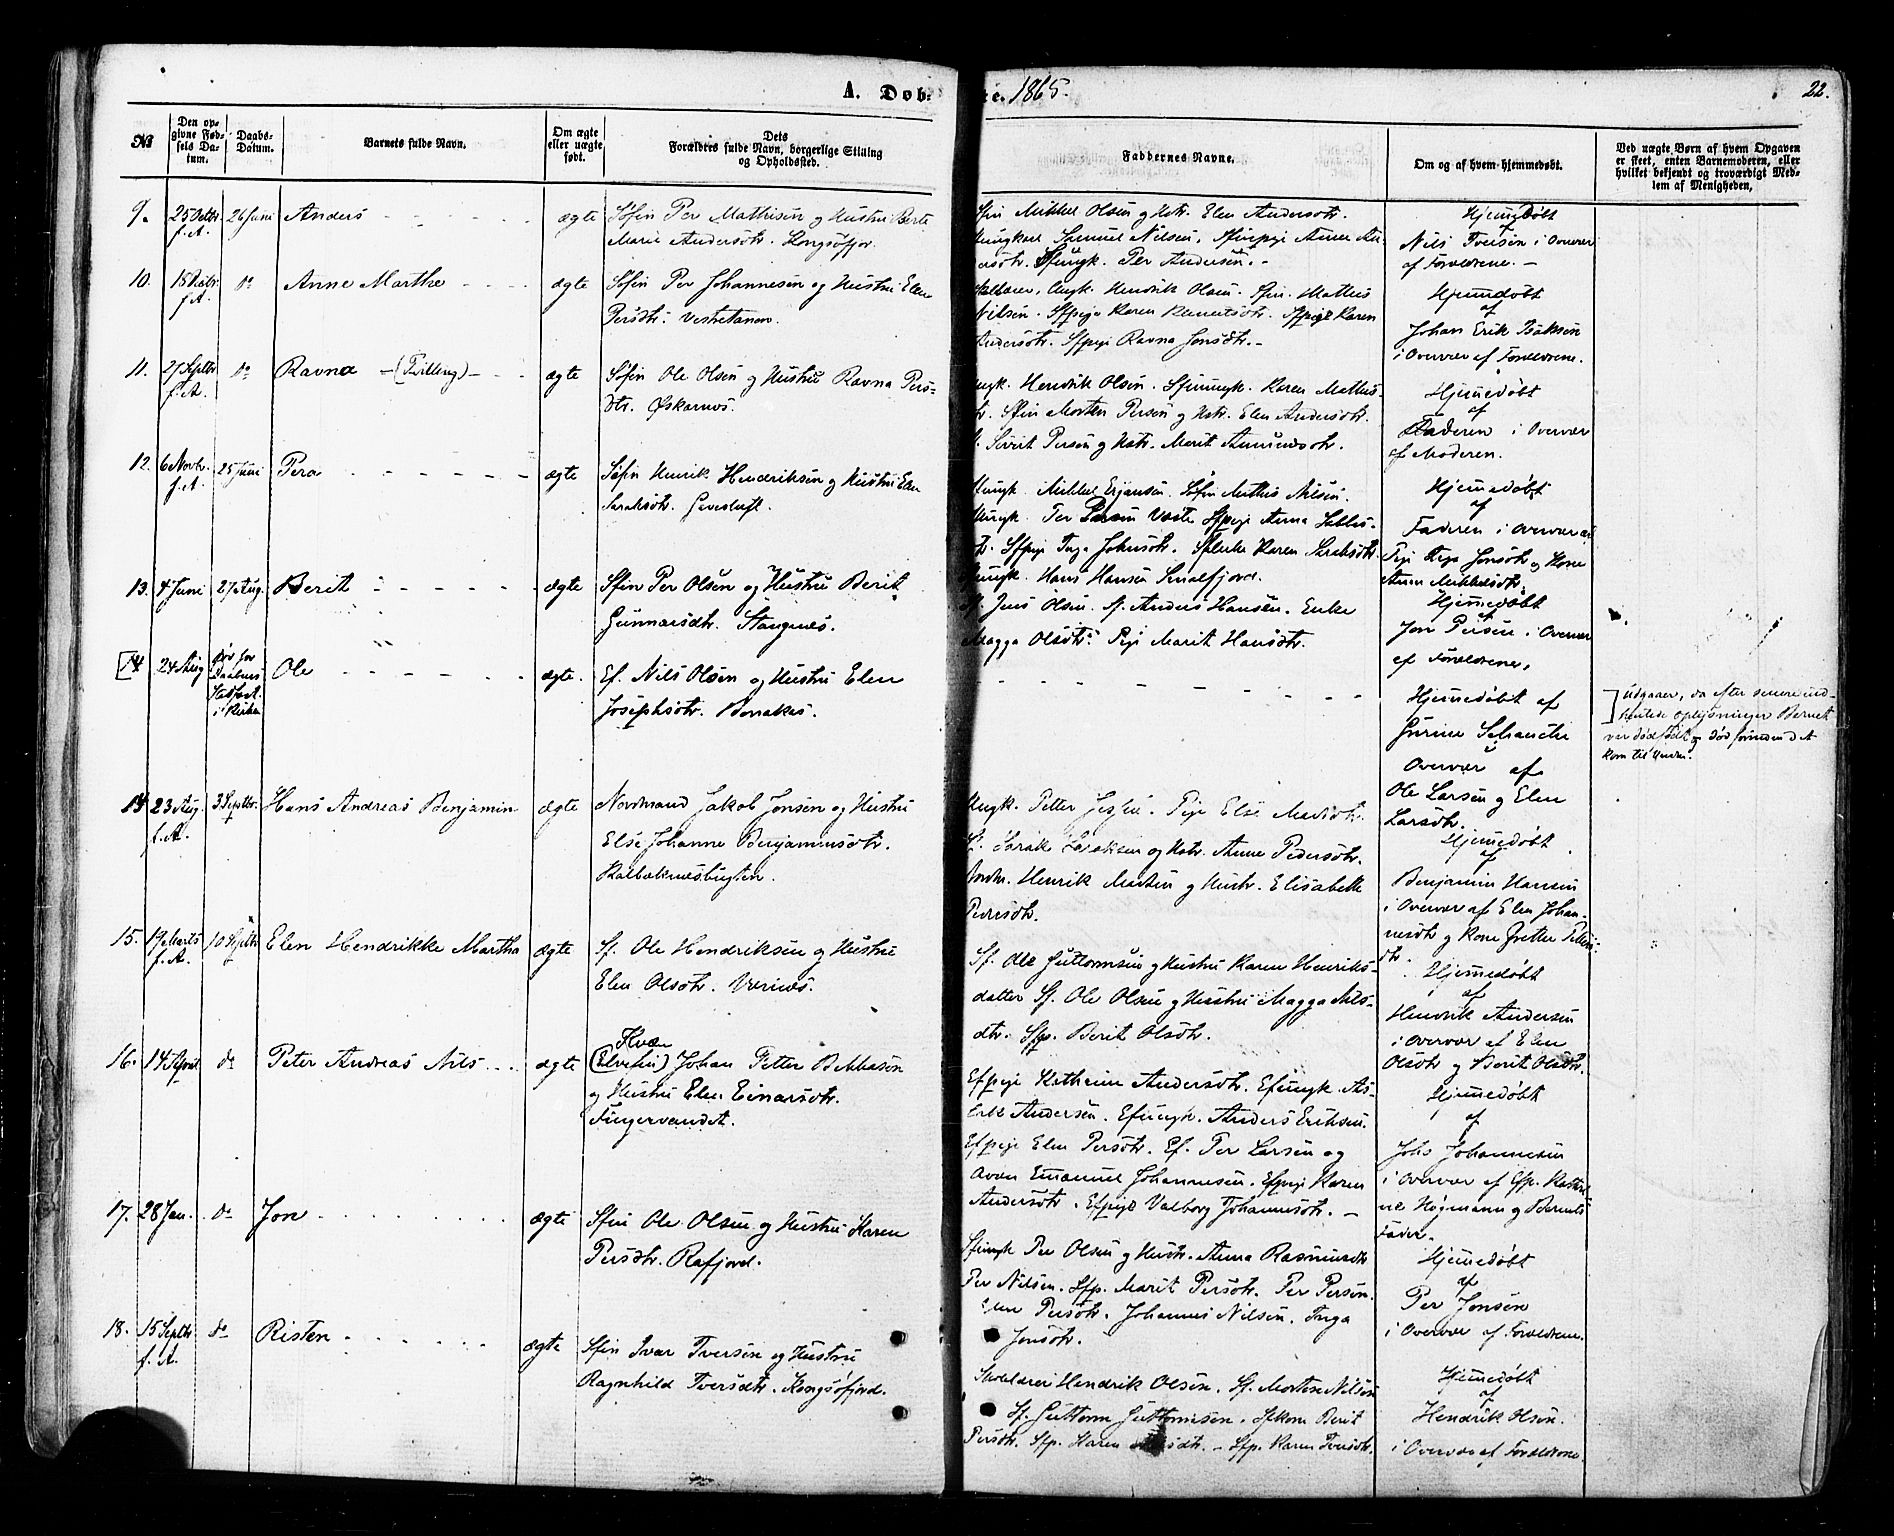 A. Døb.
te. 1865.
22.
№
Den op-
givne Fød-
sels Da-
tum.
Daabs-
Datum.
Barnets fulde Navn.
Om ægte
eller uægte
født.
Dets
Forældres fulde Navn, borgerlige Stilling
og Opholdssted.
Faddernes Navne.
Om og af hvem hjemmedøbt.
Ved uægte Børn af hvem Opgaven
er skeet, enten Barnemoderen, eller
hvilket bekjendt og troværdigt Med-
lem af Menigheden,
9. 25 Octbr. 26 Juni Anders ægte Søfin Per Mathisen og Hustru Berte
f. A.
Marie Andersdtr. Kongsøfjor.
Sfin Mikkel Olsen og Hstr. Elen Andersdtr.
Ungkarl Samuel Nilsen, Sfinpige Anne An-
dersdtr. Sfungk. Per Andersen. -
Hjemmedøbt
af
Nils Iversen i Overvær
af Forældrene. -
10. 18 Octbr. do Anne Marthe ægte Søfin Per Johannesen og Hustru Elen
f. A.
Persdtr. Vestertanen.
Skolelærer, Ungk. Hendrik Olsen. Sfin. Mathis
Nilsen. Sfpige Karen Klemetsdtr. Sfpige Karen
Andersdtr. Sfpige Ravna Jonsdtr. -
Hjemmedøbt
af
Johan Erik Isaksen
i Overvær af Forældrene.
11. 27 Septbr. do Ravna - (Tvilling) - ægte Søfin Ole Olsen og Hustru Ravna Pers-
f. A.
dtr. Øskarnes.
Ungk. Hendrik Olsen. Sfinungk. Karen Mathis-
dtr. Sfin Morten Persen og Hstr. Elen Andersdtr.
Sf. Persen og Hstr. Marit Amundsdtr.
Hjemmedøbt
af
Faderen i Overvær
af Moderen.
12. 6 Novbr. 25 Juni Pera ægte Søfin Henrik Hendriksen og Hustru Elen
f. A.
Saraksdtr.
Ungk. Mikkel Søfin Mathis Nilsen.
Ungk. Per Persen Sfpige Anna
dtr. Sfpige Inga Johnsdtr. Karen Saraksdtr.
Ungk. Hans Hansen Smalfjord.
Hjemmedøbt
af
Faderen i Overvær af
Pige Inga Jonsdtr og Kone
Anne Mikkelsdtr.
13. 4 Juni 27 Aug. Berit ægte Sfin Per Olsen og Hustru Berit
Gunnarsdtr. Stangnes.
Sf. Jens Olsen. Sf. Anders Hansen. Enke
Magga Olsdtr. Pige Marit Hansdtr.
Hjemmedøbt
af
Jon Persen i Overvær
af Forældrene,
14 24 Aug Ole ægte. Ef. Nils Olsen og Hustru Elen
Døv før
Daabens
Stadfæst.
i Kirken
Josephsdtr. Bonakas.
Hjemmedøbt af
Gurine Schanche
i
Overvær af
Ole Larsen og Elen
Larsdtr.
udgaaer, da efter senere ind-
hentede oplysninger Barnet
var dødfødt og død forinden det
kom til Verden.
14 23 Aug. 3 Septbr. Hans Andreas Benjamin ægte Nordmand Jakob Jonsen og Hustru
f. A.
Else Johanne Benjaminsdtr.
Kalbaknæsbugten.
Ungk. Petter Pige Else
Sf. Isaksen og Hstr. Anne Pedersdtr.
Nordm. Henrik Madsen og Hustr. Elisabeth
Pedersdtr.
Hjemmedøbt
af
Benjamin Hansen
i Overvær af Elen Johan-
nesdtr og Kone Grethe Petters-
dtr.
15. 19 Marts 10 Septbr Elen Hendrikke Martha ægte Sf. Ole Hendriksen og Hustru
f. A.
Elen Olsdtr. Værnes.
Sf. Ole Guttormsen og Hustru Karen Henriks-
datter Sf. Ole Olsen og Hustru Magga Nils-
dtr. Sfp. Berit Olsdtr.
Hjemmedøbt
af
Henrik Andersen
i Overvær af Elen
Olsdtr og Berit Olsdtr.
16. 14 April do Peter Andreas Nils ægte
Kvæn
(Elvefin) Johan Petter
og Hustru Elen Einarsdtr.
Fingervandet.
Efpige Kathrine Andersdtr. Efungk. As-
lak Andersen. Efungk. Anders Eriksen.
Efpige Elen Persdtr. Ef. Per Larsen og
Emanuel Johannesen. Efpige Karen
Andersdtr. Efpige Valborg Johannesdtr. -
Hjemmedøbt
af
Johs Johannesen
i Overvær af Efp. Kathri-
ne Høgmann og Barnets
Fader.
17. 28 Jan. do Jon ægte Sfin Ole Olsen og Hustru Karen
Persdtr. Rafjord.
Sfungk Per Olsen og Hustr. Anna Rasmusdtr
Per Nilsen. Sfp. Marit Persdtr. Per Persen.
Elen Persdtr. Johannes Nilsen. Inga
Jonsdtr.
Hjemmedøbt
af
Per Jonsen
i Overvær af Forældrene.
18. 15 Septbr do Risten ægte Sfin Ivar Iversen og Hustru
f. A.
Ragnhild Iversdtr. Kongsøfjord.
Skolelærer Hendrik Olsen. Sf. Morten Nilsen
Sf. Guttorm Guttormsen. Sfkone Berit
Persdtr. Sfp. Karen Nilsdtr. - Sfp. Karen Iversdtr.
Hjemmedøbt
af
Hendrik Olsen.
i Overvær af Forældrene